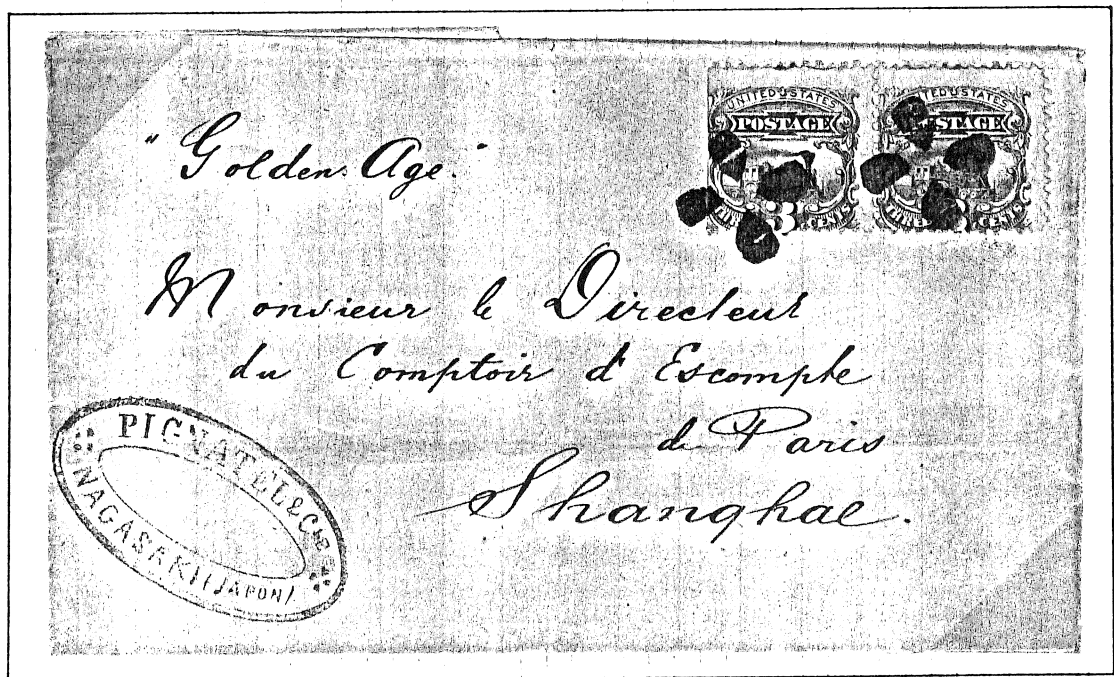 UNITED STATES
POSTAGE
THREE 3 CENTS
UNITED STATES
POSTAGE
THREE CENTS
"Golden Age"
Monsieur le Directeur
du Comptoir d'Escompte
de Paris
Shanghae.
PIGNATEL & Cie
NAGASAKI (JAPON)